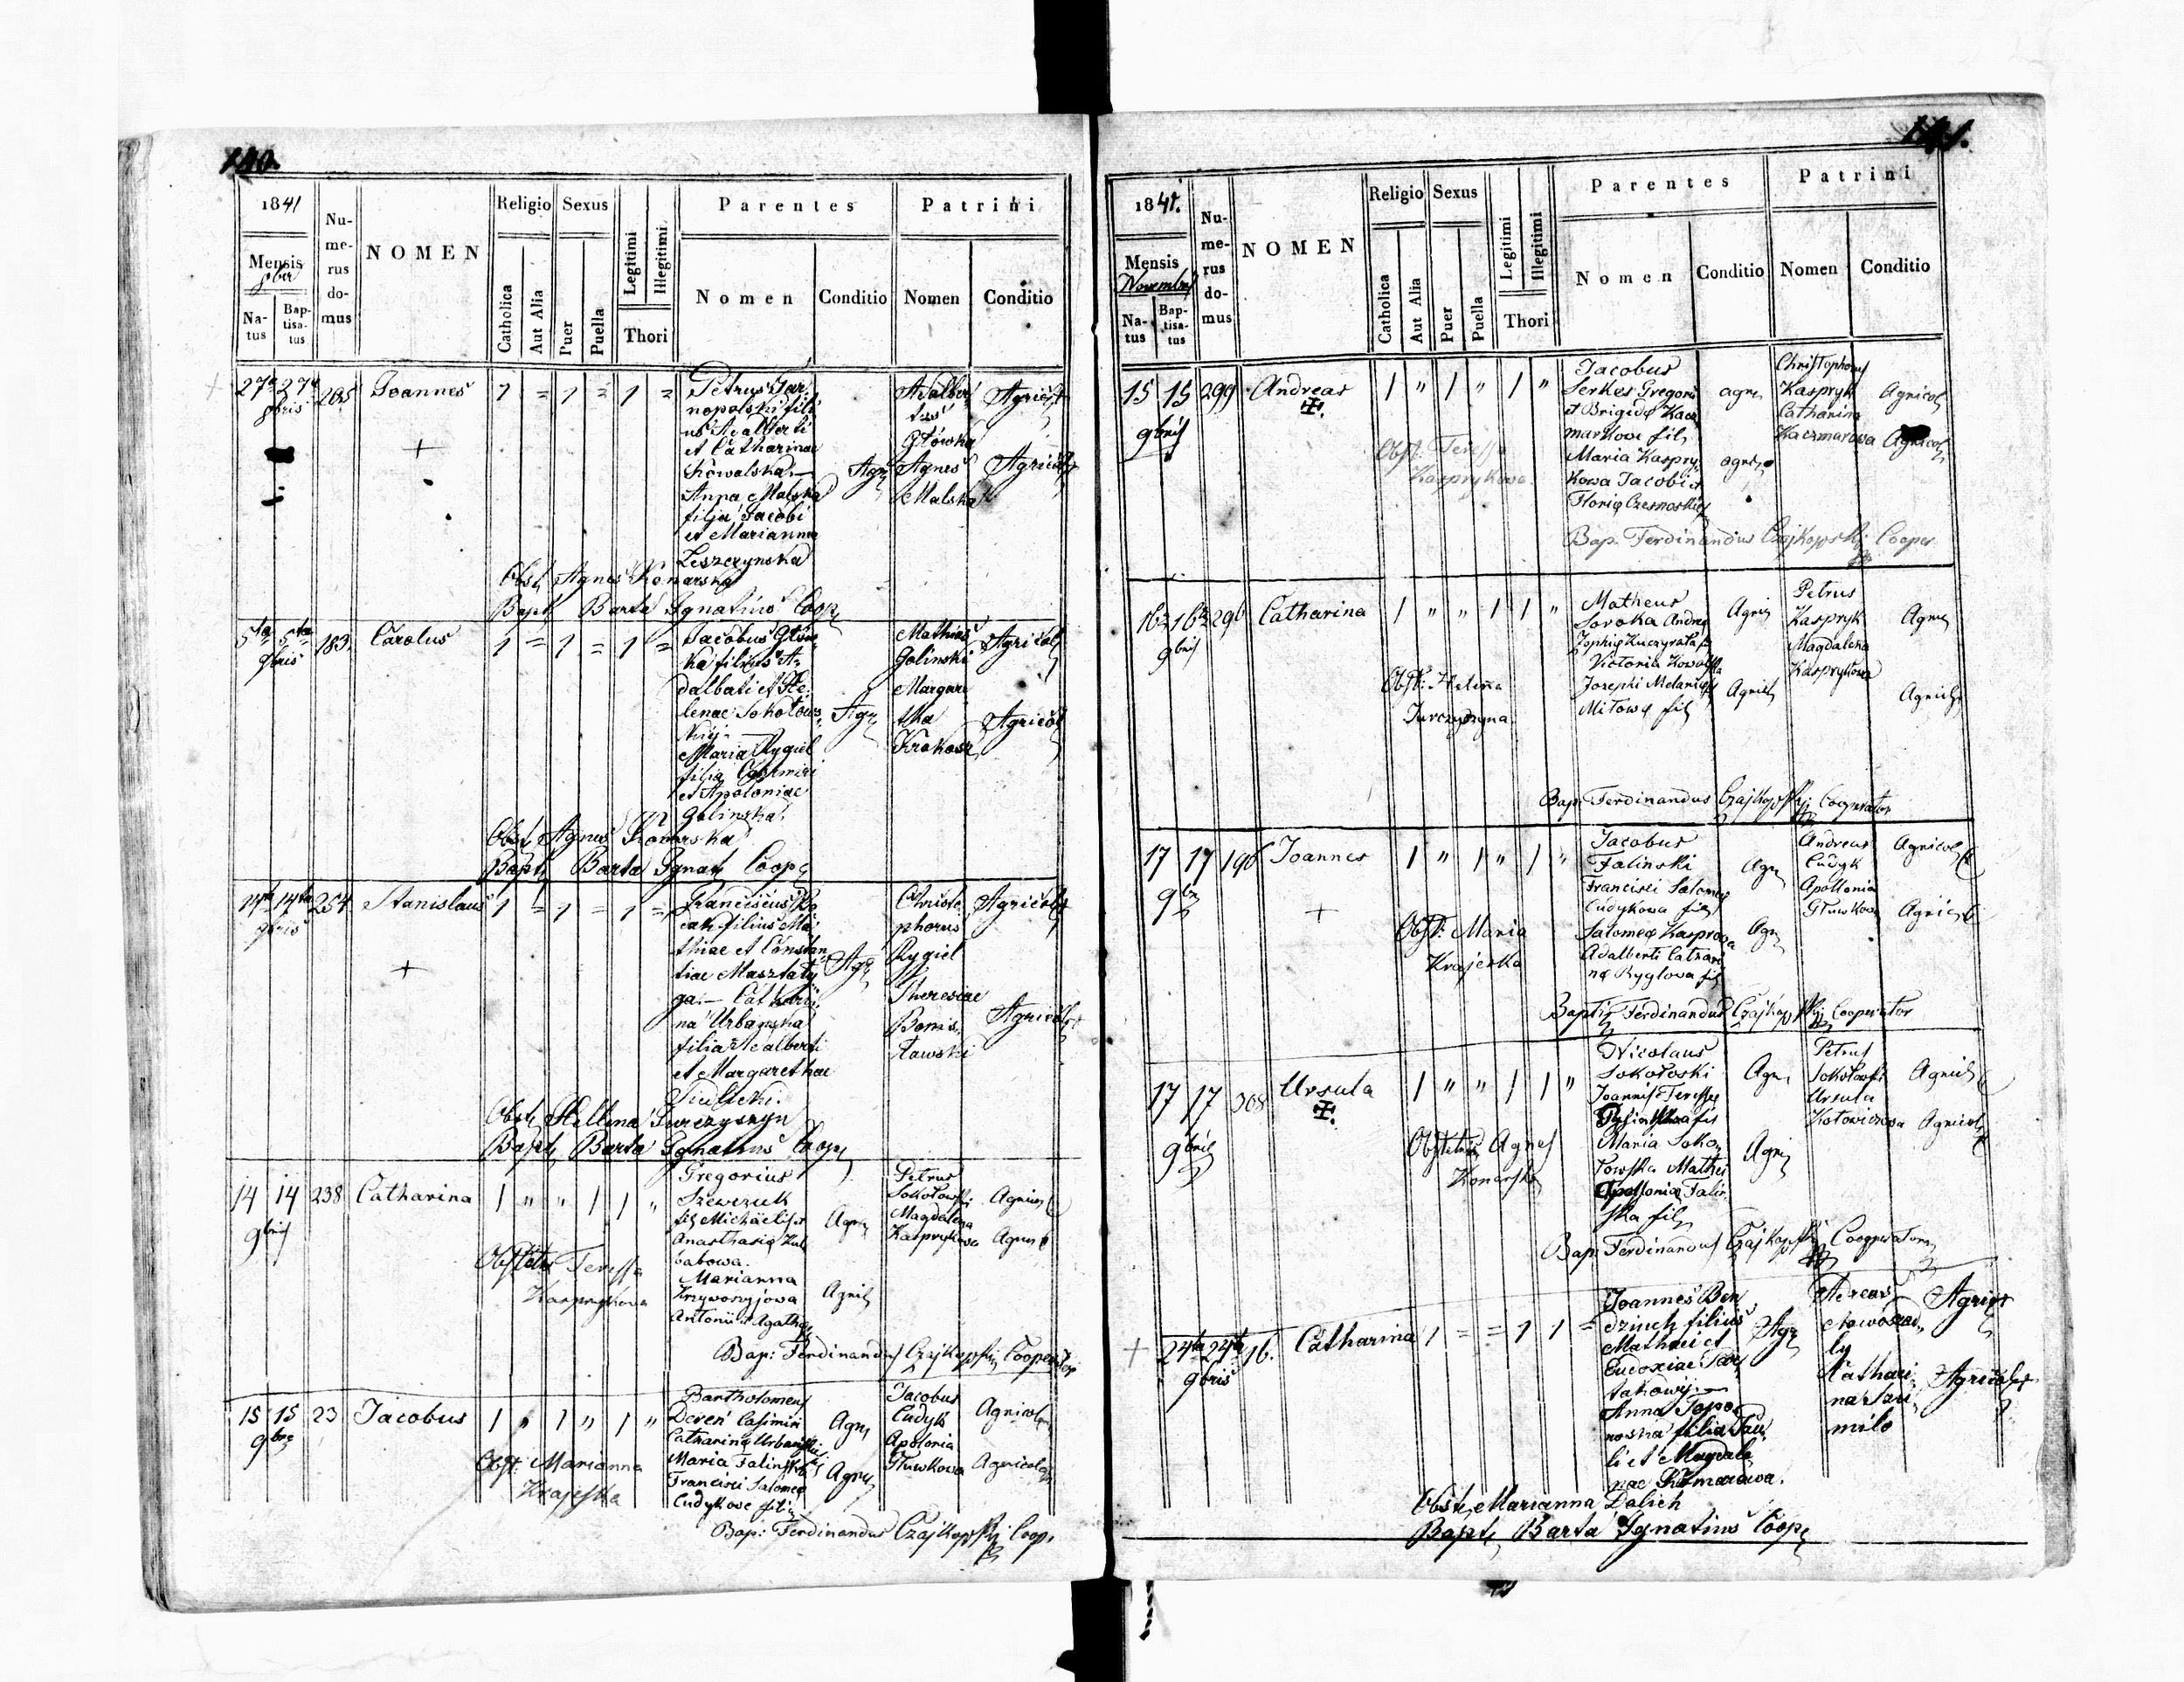 140.
1841
Mensis
8ber
Na-
tus
Bap-
tisa-
tus
Nu-
me-
rus
do-
mus
NOMEN
Religio
Catholica
Aut Alia
Sexus
Puer
Puella
Legitimi
Illegitimi
Thori
Parentes
Nomen
Conditio
Patrini
Nomen
Conditio
27a 27a
8bris
Joannes
1 = 1 = 1 =
Petrus Gar-
nopolski fili-
us Adalberti
et Catharinae
Kowalska.—
Anna Malska
filia Jacobi
et Marianna
Leszczynska
Agr
Adalber
tus
Główka
Agnes
Malska
Agricol
Agricol
Obst. Agnes Konarska
Bapt. Barta Ignatius Coop.
5ta 5ta
9bris
183.
Carolus
1 = 1 = 1 =
Jacobus Głów-
ka filius A-
dalbati et He-
lenae Sokołows-
kij.
Maria Rygiel
filia Casimiri
et Apoloniae
Golinska.
Agr
Mathias
Golinski
Margare
tha
Krokosz
Agricol
Agricol
Obst. Agnes Konarska
Bapt. Barta Ignat. Coop.
14ta 14ta
9bris
254
Stanislaus
1 = 1 = 1 =
Franciscus
filius Ma-
thiae et Constan-
tiae Masztaly
ga.— Cathari-
na Urbanska
filia Adalberti
et Margarethae
Agr
Christo-
phorus
Rygiel
Theresiae
Bonis-
ławski
Agricol
Agricol
Obst. Hellena Jurczyszyn
Bapt. Barta Ignatius Coop.
14 14
9bris
238
Catharina
1 " " 1 1 "
Gregorius
Szewczuk
fil. Michaelis et
Anasthasia
Marianna
Krzywonyjowa
Antonii et Agatha
Agri
Agricol
Petrus
Sokołowski
Magdalena
Kasprykowa
Agricol
Obstetr. Teressa
Kasprykowa
Bap: Ferdinandus Czajkowskij Cooperator
15 15
9bre
23
Jacobus
1 " 1 " 1 "
Bartholomeus
Dereń Casimiri
Catharina Urbańska
Maria Falinska
Francisci Salomea
Cudykowe filia
Agri
Agri
Jacobus
Cudyk
Apolonia
Głuwkowa
Agricol
Agricol
Obst. Marianna
Krajeska
Bap: Ferdinandus Czajkowskij Coop.
141.
1841.
Mensis
November
Na-
tus
Bap-
tisa-
tus
Nu-
me-
rus
do-
mus
NOMEN
Religio
Catholica
Aut Alia
Sexus
Puer
Puella
Legitimi
Illegitimi
Thori
Parentes
Nomen
Conditio
Patrini
Nomen
Conditio
15 15
9bris
299
Andreas
1 " 1 " 1 "
Jacobus
Serkes Gregorii
et Brigida Kacz
markowe fil.
Maria Kaspry-
kowa Jacobi et
agri
agri
Christophorus
Kaspryk
Catharina
Kaczmarowa
Agricol
Agricol
Obst. Teressa
Kasprykowa
Bap. Ferdinandus Czajkowskij Cooper.
16a 16a
9bris
296
Catharina
1 " " 1 1 "
Matheus
Soroka Andrea
Victoria Kowalska
Josephi Melania
Miłowa fil.
Agri
Agricol
Petrus
Kaspryk
Magdalena
Kasprykowa
Agri
Agricol
Obst. Helena
Jurczyszyna
Bap. Ferdinandus Czajkowskij Cooperator
17 17
9br
196
Joannes
1 " 1 " 1 "
Jacobus
Falinski
Francisci Salomea
Cudykowa fil.
Salomea Kasprowa
Adalberti Cathari
na Ryglowa fil.
Agri
Agri
Andreas
Cudyk
Apollonia
Głuwkowa
Agricol
Agricol
Obst. Maria
Krajeska
Bapti. Ferdinandus Czajkowskij Cooperator
17 17
9bris
308
Ursula
1 " " 1 1 "
Nicolaus
Sokołoski
Joannis Teressa
Maria Soko-
łowska Mathei
Apollonia Falin
ska fil.
Agri
Agri
Petrus
Sokołowski
Ursula
Kotowiczowa
Agricol
Agricol
Obstetrix Agnes
Konarska
Bap. Ferdinandus Czajkowskij Cooperator
24ta 24ta
9bris
16.
Catharina
1 = = 1 1 =
Joannes Ben
dzinch filius
Mathaei et
Eudoxiae
Anna Topo-
noska filia Pau
li et Magdale
nae
Agr
Nathari-
na
Agricol
Agricol
Obst. Marianna Dalich
Bapt. Barta Ignatius Coop.